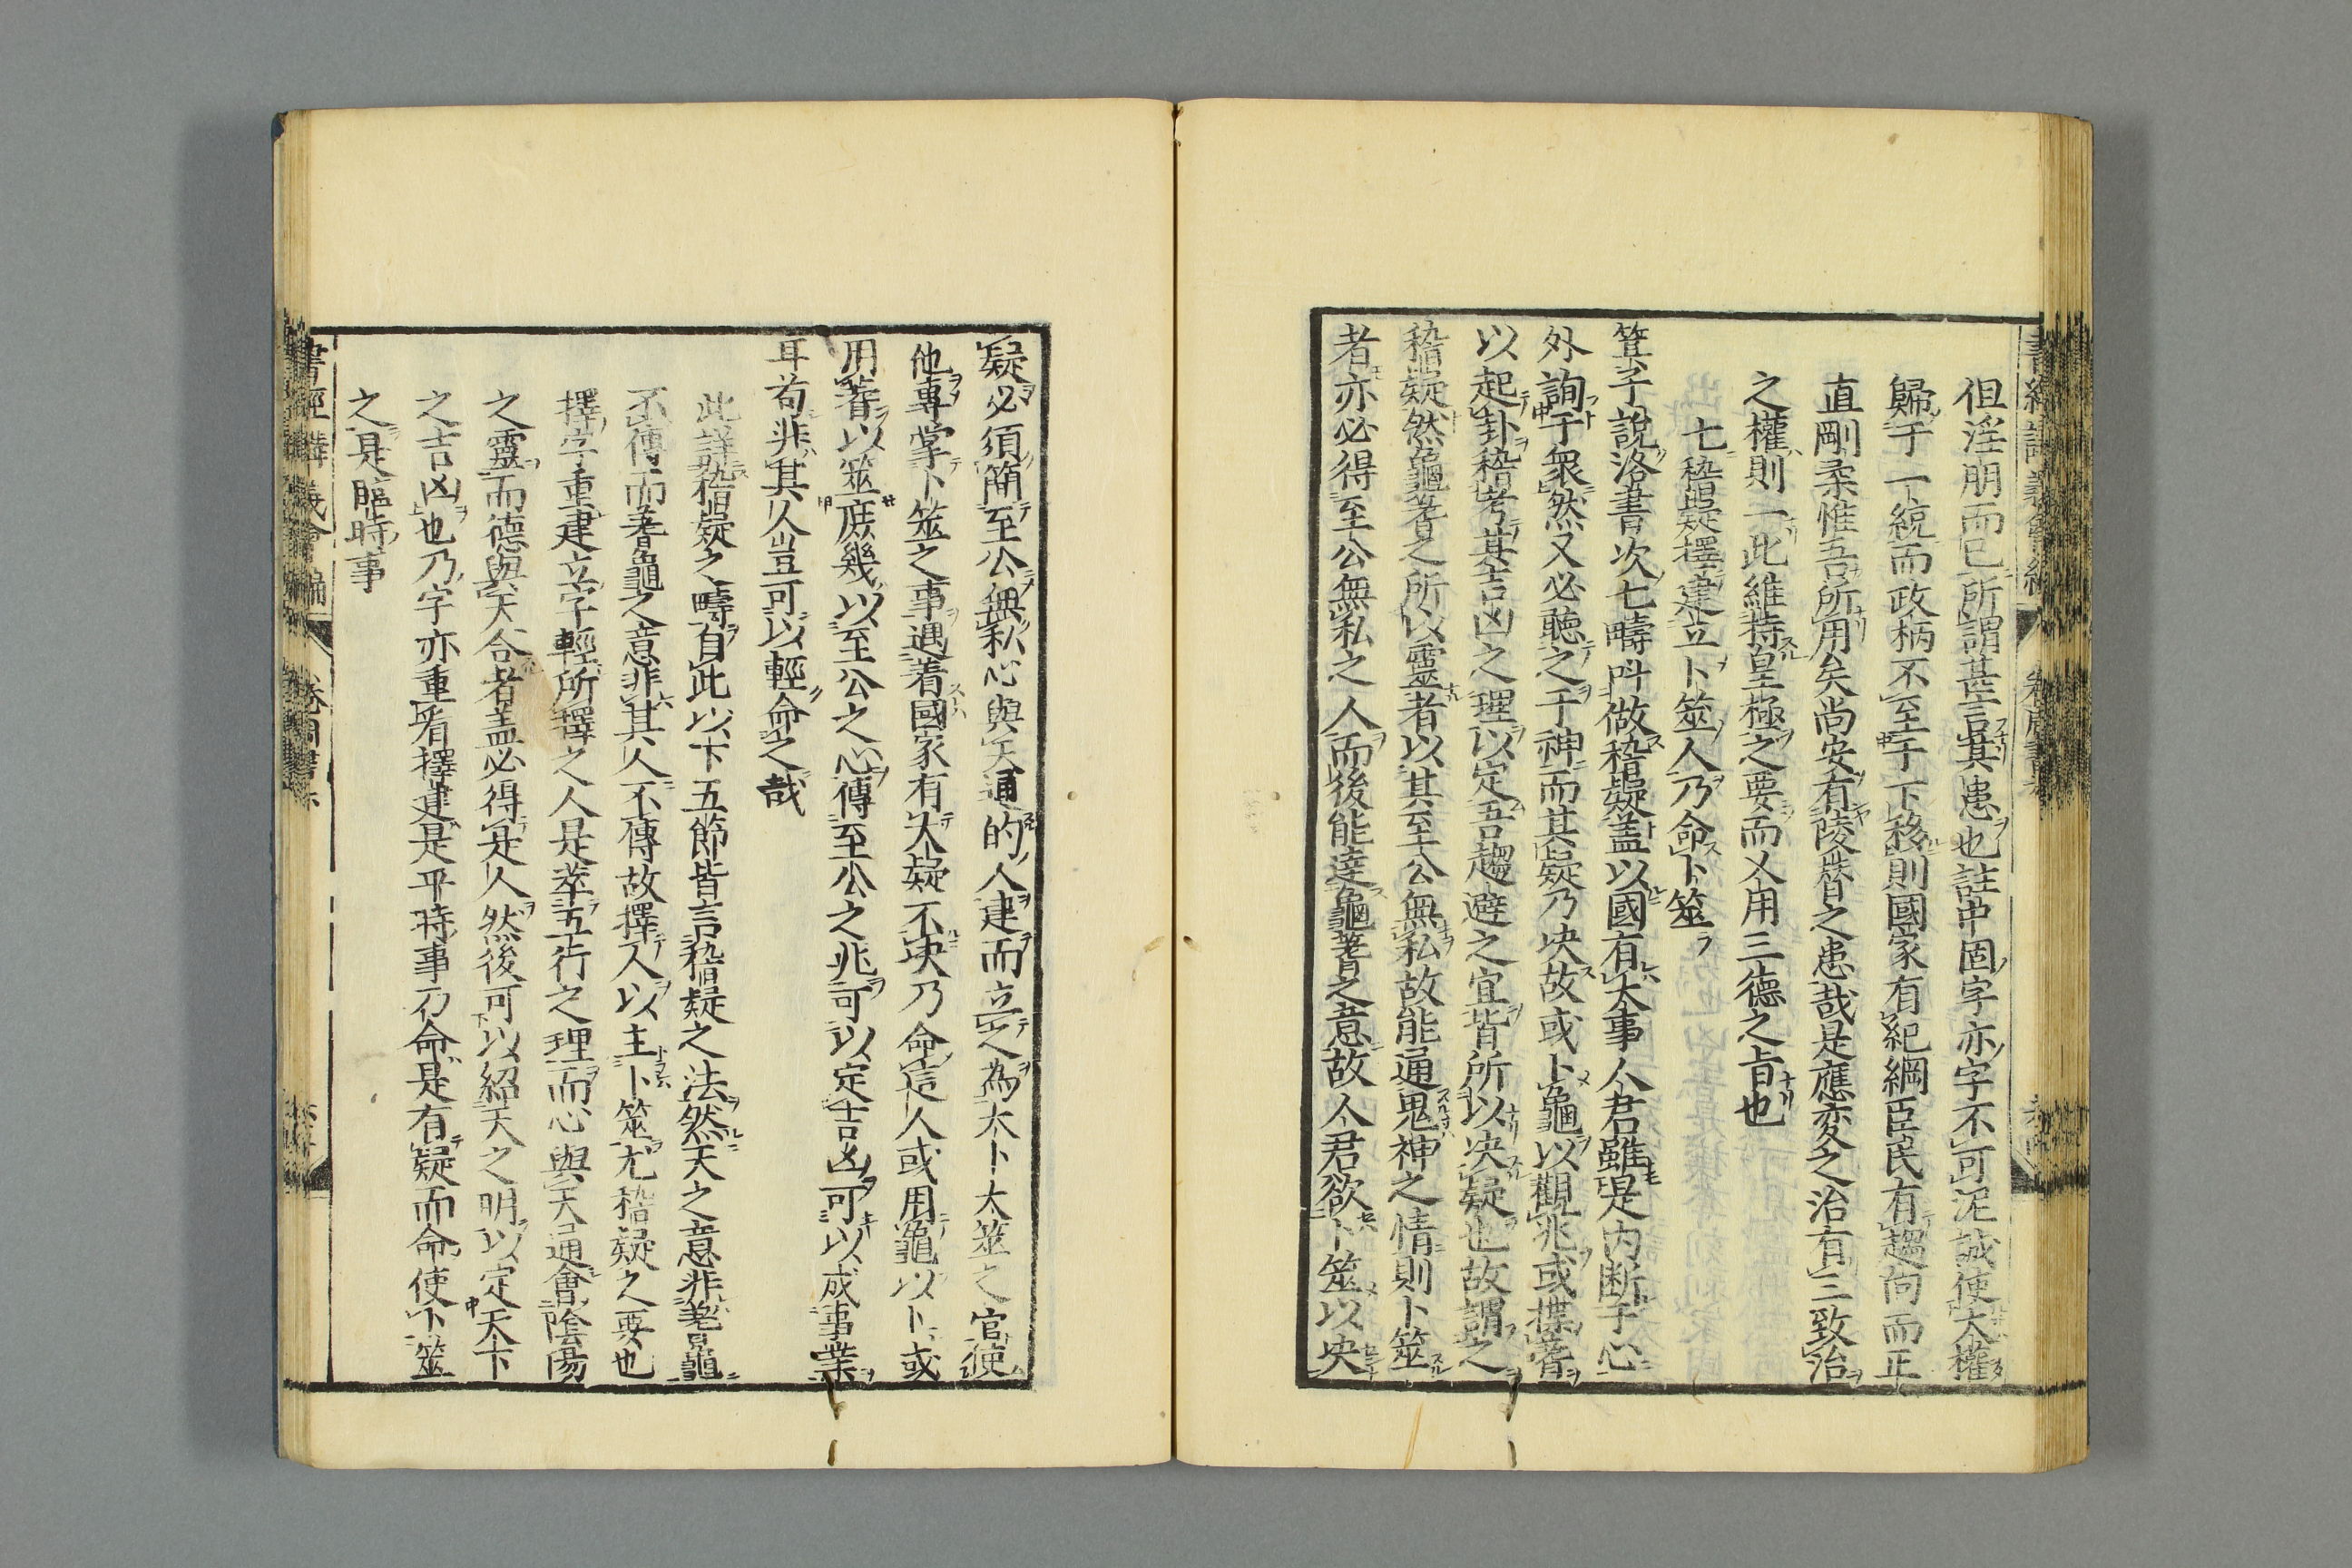 但淫朋而已所謂甚言其患也註中固字亦字不可泥誠使大權
歸于一統而政柄不至于下移則國家有紀綱臣民有趨向而正
直剛柔惟吾所用矣尚安有陵替之患哉是應変之治有三致治
之權則一此維持皇極之要而乂用三德之旨也
七稽疑擇建立卜筮人乃命卜筮
箕子說洛書次七疇呌做稽疑盖以國有大事人君雖是内断于心
外詢于衆然又必聴之于神而其疑乃决故或卜龜以觀兆或揲蓍
以起卦稽考其吉凶之理以定吾趨避之宜皆所以决疑也故謂之
稽疑然龜蓍之所以靈者以其至公無私故能通鬼神之情則卜筮
者亦必得至公無私之人而後能達龜蓍之意故人君欲卜筮以决
疑必須簡至公無私心與天通的人建而立之為太卜太筮之官使
他專掌卜筮之事遇着國家有大疑不决乃命這人或用龜以卜或
用蓍以筮庶幾以至公之心傳至公之兆可以定吉凶可以成事業
耳苟非其人豈可以輕命之哉
此詳稽疑之疇自此以下五節皆言稽疑之法然天之意非蓍龜
不傳而蓍龜之意非其人不傳故擇人以主卜筮尤稽疑之要也
擇字重建立字輕所擇之人是萃五行之理而心與天通會陰陽
之靈而德與天合者盖必得是人然後可以紹天之明以定天下
之吉凶也乃字亦重看擇建是平時事乃命是有疑而命使卜筮
之是臨時事
書經講義會編
卷周書